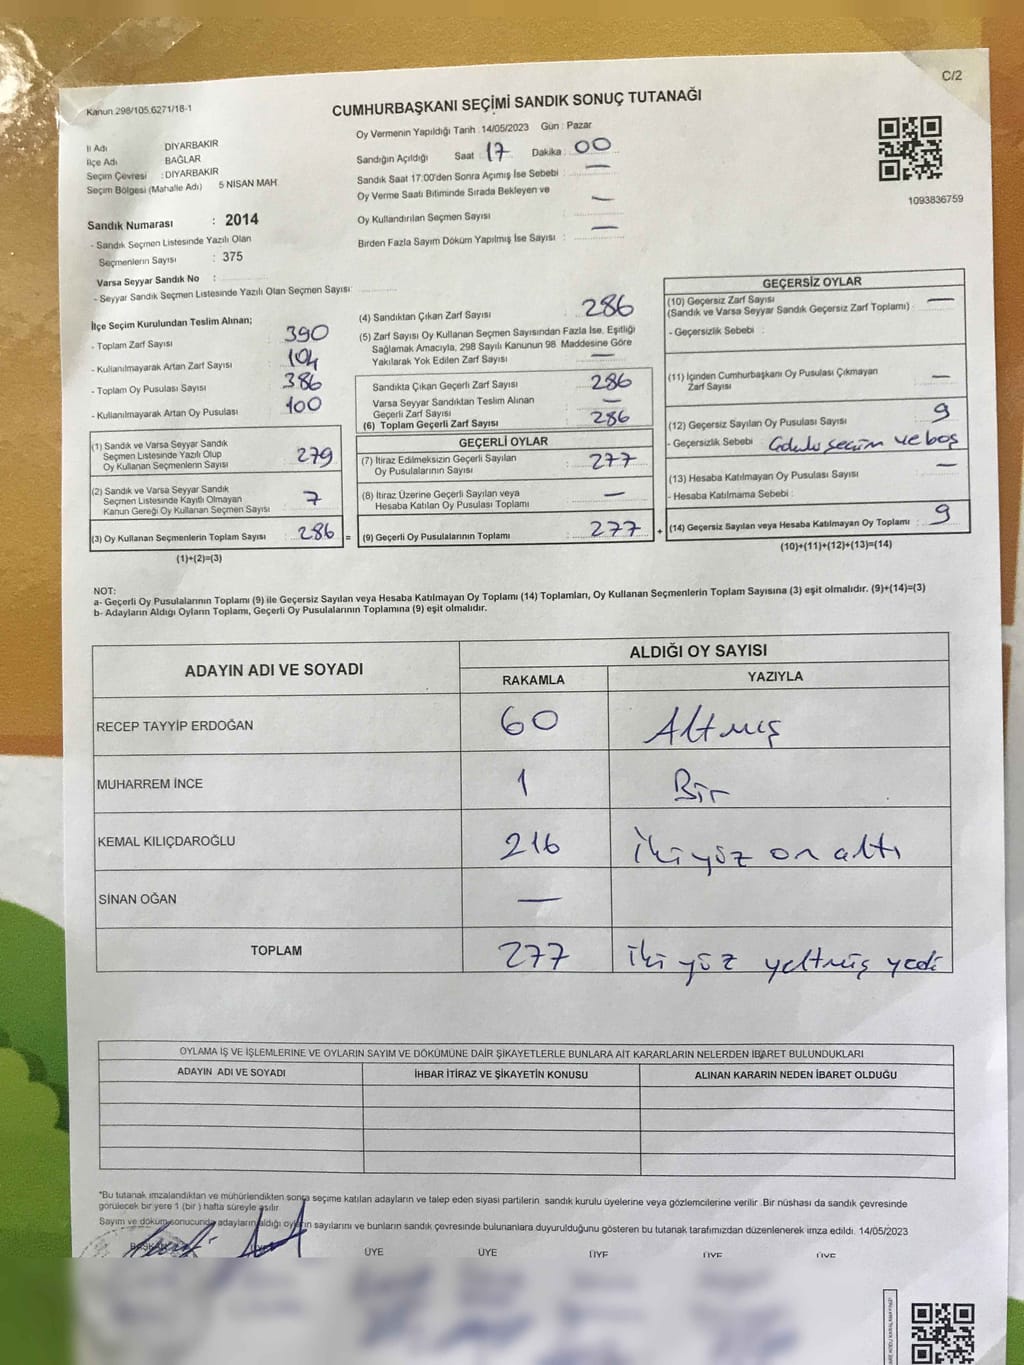 C/2
Kanun 298/105.6271/16-1
CUMHURBAŞKANI SEÇİMİ SANDIK SONUÇ TUTANAĞI
İl Adı DİYARBAKIR
İlçe Adı BAĞLAR
Seçim Çevresi : DİYARBAKIR
Seçim Bölgesi (Mahalle Adı) 5 NİSAN MAH
Oy Vermenin Yapıldığı Tarih :14/05/2023 Gün : Pazar
Sandığın Açıldığı Saat 17 Dakika : 00
Sandık Saat 17:00'den Sonra Açımış İse Sebebi : —
Oy Verme Saati Bitiminde Sırada Bekleyen ve
Oy Kullandırılan Seçmen Sayısı —
Birden Fazla Sayım Döküm Yapılmış İse Sayısı : —
1093836759
Sandık Numarası : 2014
- Sandık Seçmen Listesinde Yazılı Olan
Seçmenlerin Sayısı : 375
Varsa Seyyar Sandık No :
- Seyyar Sandık Seçmen Listesinde Yazılı Olan Seçmen Sayısı:
İlçe Seçim Kurulundan Teslim Alınan;
- Toplam Zarf Sayısı 390
- Kullanılmayarak Artan Zarf Sayısı 104
- Toplam Oy Pusulası Sayısı 386
- Kullanılmayarak Artan Oy Pusulası 100
(1) Sandık ve Varsa Seyyar Sandık
Seçmen Listesinde Yazılı Olup
Oy Kullanan Seçmenlerin Sayısı 279
(2) Sandık ve Varsa Seyyar Sandık
Seçmen Listesinde Kayıtlı Olmayan
Kanun Gereği Oy Kullanan Seçmen Sayısı 7
(3) Oy Kullanan Seçmenlerin Toplam Sayısı 286 =
(1)+(2)=(3)
(4) Sandıktan Çıkan Zarf Sayısı 286
(5) Zarf Sayısı Oy Kullanan Seçmen Sayısından Fazla İse, Eşitliği
Sağlamak Amacıyla, 298 Sayılı Kanunun 98. Maddesine Göre
Yakılarak Yok Edilen Zarf Sayısı —
Sandıkta Çıkan Geçerli Zarf Sayısı 286
Varsa Seyyar Sandıktan Teslim Alınan
Geçerli Zarf Sayısı —
(6) Toplam Geçerli Zarf Sayısı 286
GEÇERLİ OYLAR
(7) İtiraz Edilmeksizin Geçerli Sayılan
Oy Pusulalarının Sayısı 277
(8) İtiraz Üzerine Geçerli Sayılan veya
Hesaba Katılan Oy Pusulası Toplamı —
(9) Geçerli Oy Pusulalarının Toplamı 277 +
GEÇERSİZ OYLAR
(10) Geçersiz Zarf Sayısı —
(Sandık ve Varsa Seyyar Sandık Geçersiz Zarf Toplamı) :
- Geçersizlik Sebebi :
(11) İçinden Cumhurbaşkanı Oy Pusulası Çıkmayan
Zarf Sayısı —
(12) Geçersiz Sayılan Oy Pusulası Sayısı 9
- Geçersizlik Sebebi seçim ve boş
(13) Hesaba Katılmayan Oy Pusulası Sayısı —
- Hesaba Katılmama Sebebi :
(14) Geçersiz Sayılan veya Hesaba Katılmayan Oy Toplamı : 9
(10)+(11)+(12)+(13)=(14)
NOT:
a- Geçerli Oy Pusulalarının Toplamı (9) ile Geçersiz Sayılan veya Hesaba Katılmayan Oy Toplamı (14) Toplamları, Oy Kullanan Seçmenlerin Toplam Sayısına (3) eşit olmalıdır. (9)+(14)=(3)
b- Adayların Aldığı Oyların Toplamı, Geçerli Oy Pusulalarının Toplamına (9) eşit olmalıdır.
ADAYIN ADI VE SOYADI ALDIĞI OY SAYISI
RAKAMLA YAZIYLA
RECEP TAYYİP ERDOĞAN 60 Altmış
MUHARREM İNCE 1 Bir
KEMAL KILIÇDAROĞLU 216 İki yüz on altı
SİNAN OĞAN —
TOPLAM 277 iki yüz yetmiş yedi
OYLAMA İŞ VE İŞLEMLERİNE VE OYLARIN SAYIM VE DÖKÜMÜNE DAİR ŞİKAYETLERLE BUNLARA AİT KARARLARIN NELERDEN İBARET BULUNDUKLARI
ADAYIN ADI VE SOYADI İHBAR İTİRAZ VE ŞİKAYETİN KONUSU ALINAN KARARIN NEDEN İBARET OLDUĞU
*Bu tutanak imzalandıktan ve mühürlendikten sonra seçime katılan adayların ve talep eden siyasi partilerin sandık kurulu üyelerine veya gözlemcilerine verilir. Bir nüshası da sandık çevresinde
görülecek bir yere 1 (bir ) hafta süreyle asılır.
Sayım ve döküm sonucunda adayların aldığı oyların sayılarını ve bunların sandık çevresinde bulunanlara duyurulduğunu gösteren bu tutanak tarafımızdan düzenlenerek imza edildi. 14/05/2023
BAŞKAN ÜYE ÜYE ÜYE ÜYE ÜYE